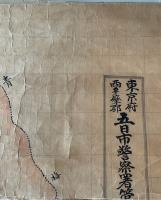 東京府
西多摩郡
五日市警察署管
青
梅